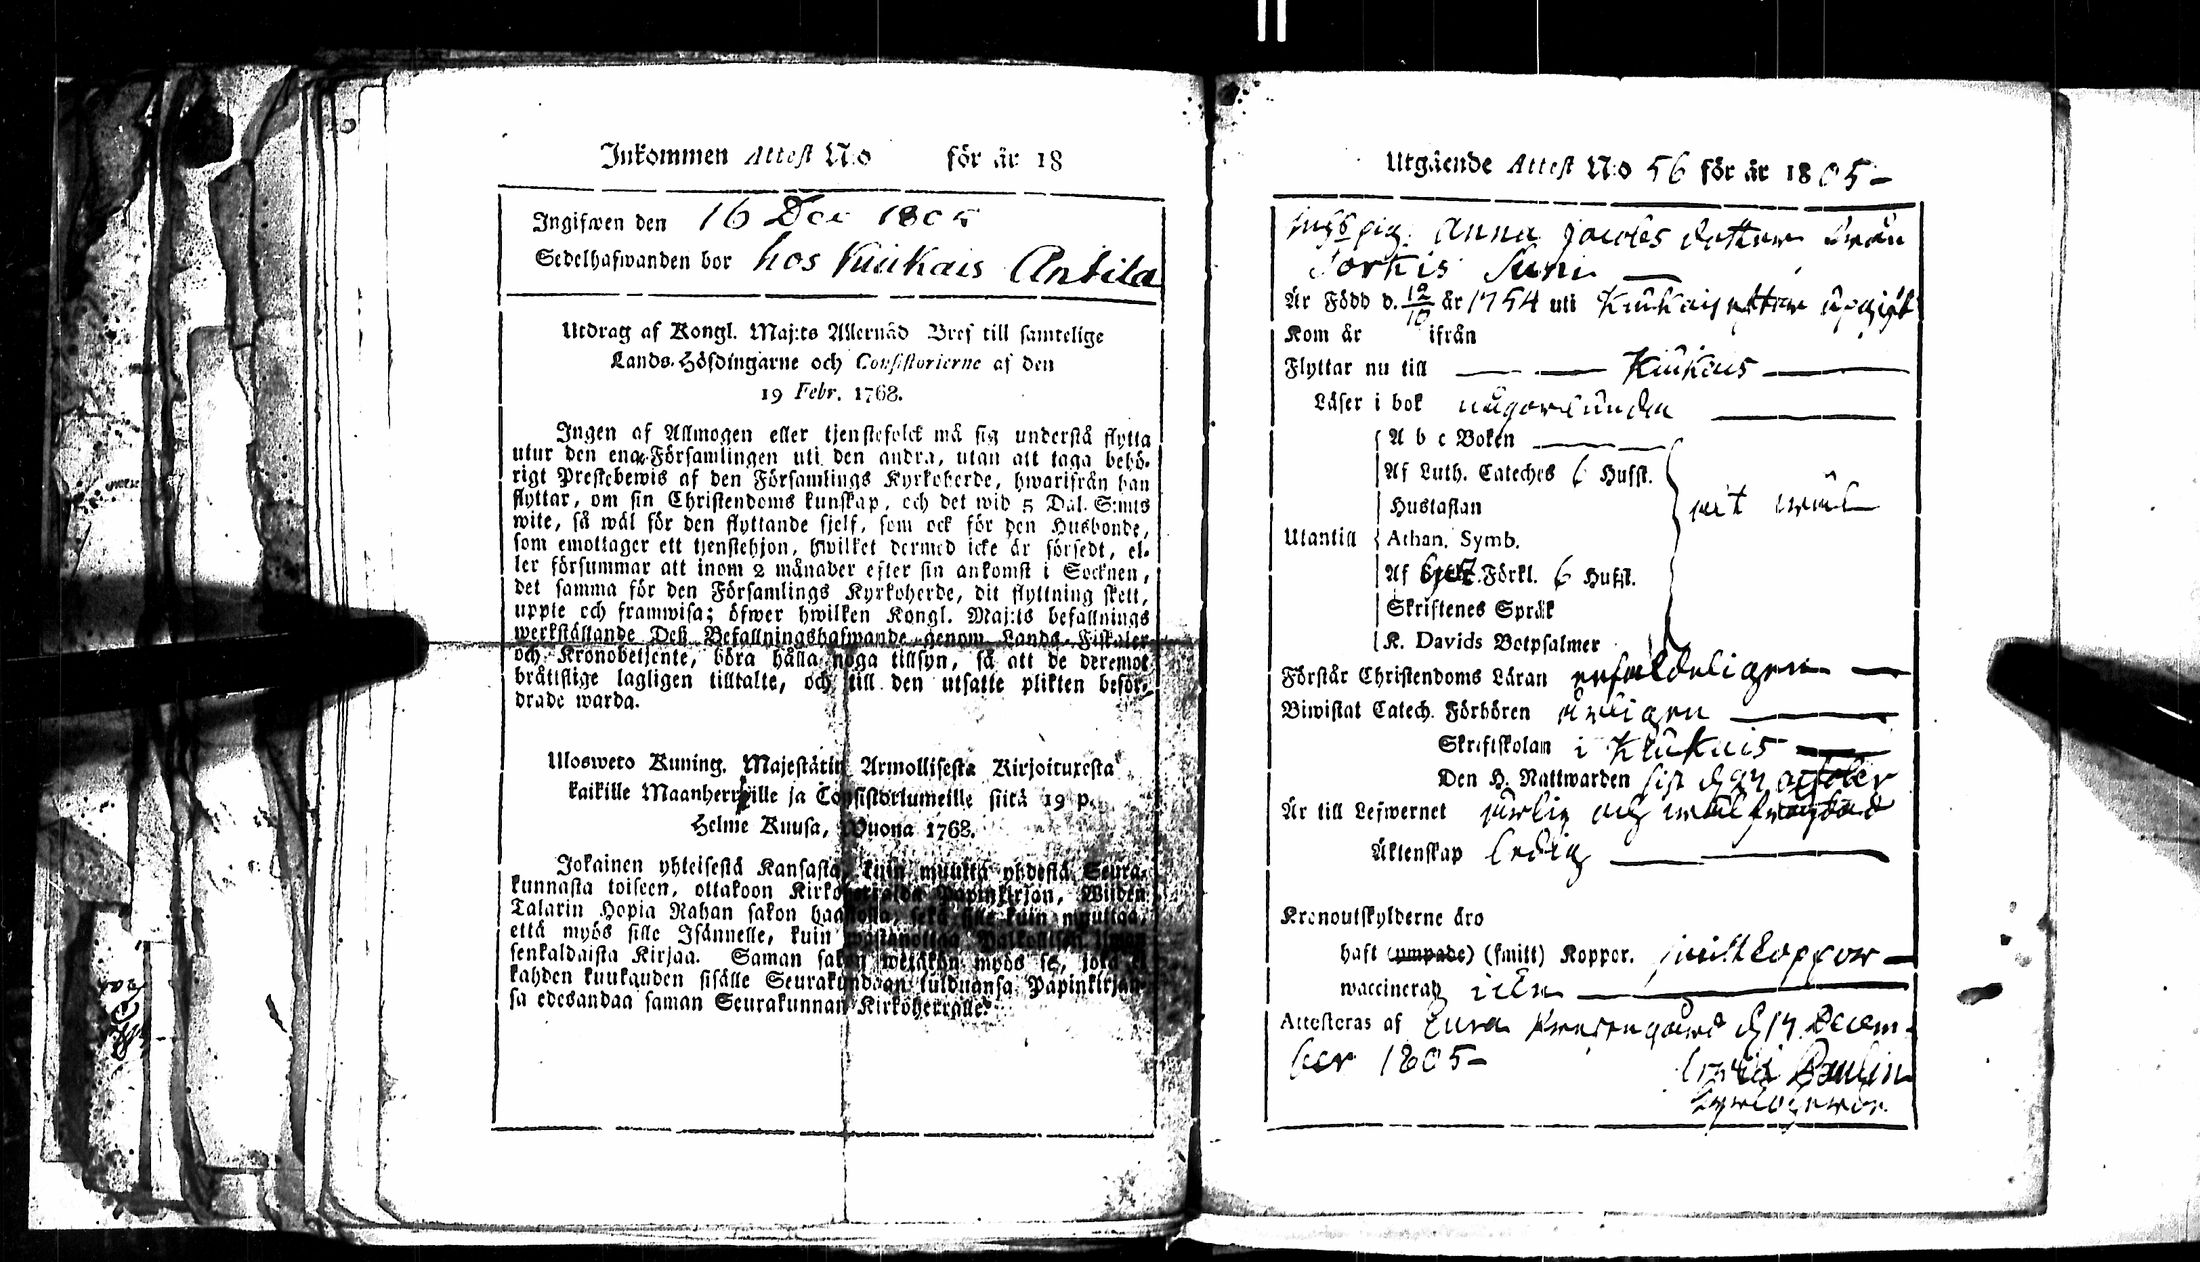 Inkommen Attest N:o för år 18
Ingifwen den 16 Dec 1805
Sedelhafwanden bor hos Kiukais Antila
Utdrag af Kongl. Maj:ts Allernåd Bref till samtelige
Lands-Höfdingarne och Consistorierne af den
19 Febr. 1768.
Ingen af Allmogen eller tjenstefolck må sig understå flytta
utur den ena Församlingen uti den andra, utan att taga behö-
rigt Prestebewis af den Församlings Kyrkoherde, hwarifrån han
flyttar, om sin Christendoms kunskap, och det wid 5 Dal. S:mts
wite, så wäl för den flyttande sjelf, som ock för den Husbonde,
som emottager ett tjenstehjon, hwilket dermed icke är försedt, el-
ler försummar att inom 2 månader efter sin ankomst i Socknen,
det samma för den Församlings Kyrkoherde, dit flyttning skett,
uppte och framwisa; öfwer hwilken Kongl. Maj:ts befallnings
werkställande Deß Befallningshafwande genom Lands-Fiskaler
och Kronobetjente, böra hålla noga tillsyn, så att de deremot
bråttslige lagligen tilltalte, och till den utsatte plikten beför-
drade warda.
Ulosweto Kuning. Majestätin Armollisesta Kirjoituxesta
kaikille Maanherroille ja Consistoriumeille siitä 19 p.
Helme Kuusa, Wuona 1768.
Jokainen yhteisestä Kansasta, kuin muutta yhdestä Seura-
kunnasta toiseen, ottakoon Kirkoherralda Papinkirjan, Wiiden
Talarin Hopia Rahan sakon haastolla, sekä sille kuin muuttaa,
että myös sille Isännelle, kuin wastanottaa Palkollisen ilman
senkaldaista Kirjaa. Saman sakon wetäkön myös se, joka ei
kahden kuukauden sisälle Seurakundaan tulduansa Papinkirjan-
sa edesandaa saman Seurakunnan Kirkoherralle.
Utgående Attest N:o 56 för år 1805-
pig. Anna Jacobs dotter från
Sorkis Suni
Är Född d. 12/10 år 1754 uti Kiukais efter upgift
Kom år ifrån
Flyttar nu till Kiukais
Läser i bok någorlunda
A b c Boken
Af Luth. Cateches 6 Hufst.
Hustaflan
Utantill Athan. Symb.
Af Förkl. 6 Hufst.
Skriftenes Språk
K. Davids Botpsalmer
Förstår Christendoms Läran enfaldeligen
Biwistat Catech. Förhören årligen
Skriftskolan i Kiukais
Den H. Nattwarden sist
Är till Lefwernet ärlig och wäl frägdad
Äktenskap ledig
Kronoutskylderne äro
haft (ympade) (smitt) Koppor. smittkoppor
waccinerad icke
Attesteras af Eura Prestegård d 14 Decem-
ber 1805-
Paulin